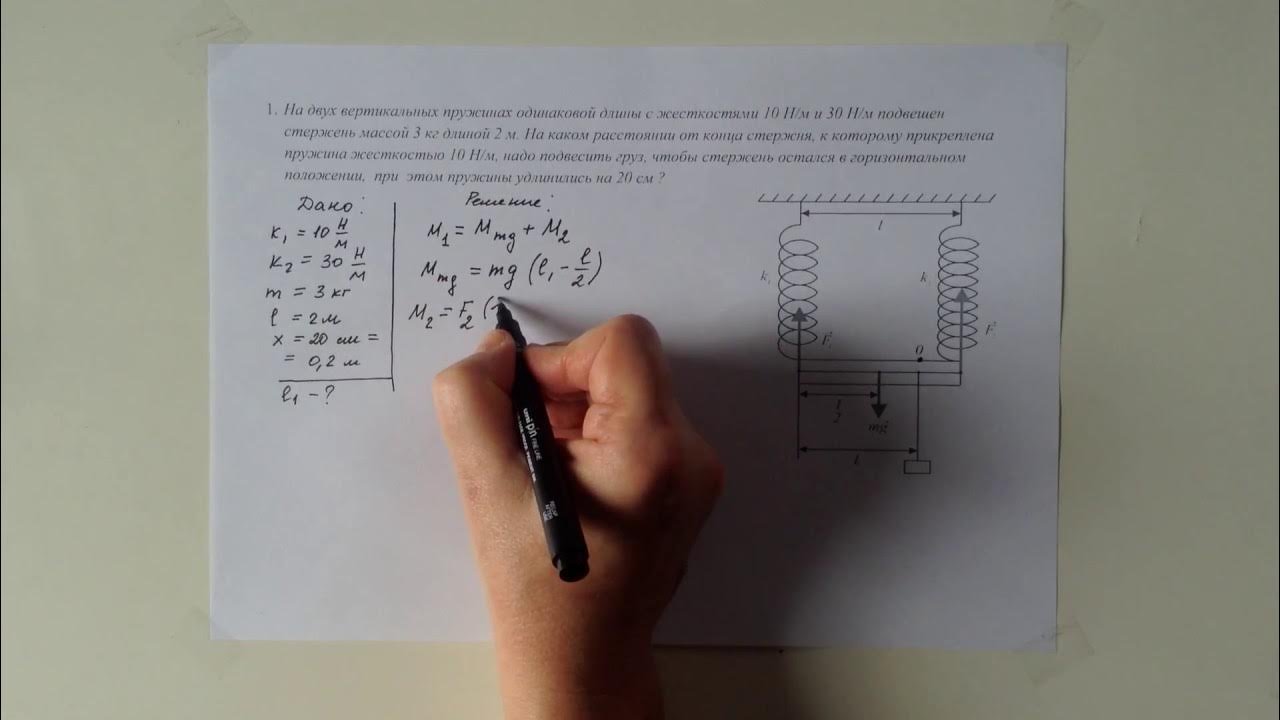 1. На двух вертикальных пружинах одинаковой длины с жесткостями 10 Н/м и 30 Н/м подвешен
стержень массой 3 кг длиной 2 м. На каком расстоянии от конца стержня, к которому прикреплена
пружина жесткостью 10 Н/м, надо подвесить груз, чтобы стержень остался в горизонтальном
положении, при этом пружины удлинились на 20 см ?
Дано:
K₁ = 10 Н/м
K₂ = 30 Н/м
m = 3 кг
l = 2 м
x = 20 см =
= 0,2 м
l₁ - ?
Решение:
M₁ = M_mg + M₂
M_mg = mg (l₁ - l/2)
M₂ = F₂ (
l
k
k
F
F
O
l/2
mg
l
uni PIN FINE LINE